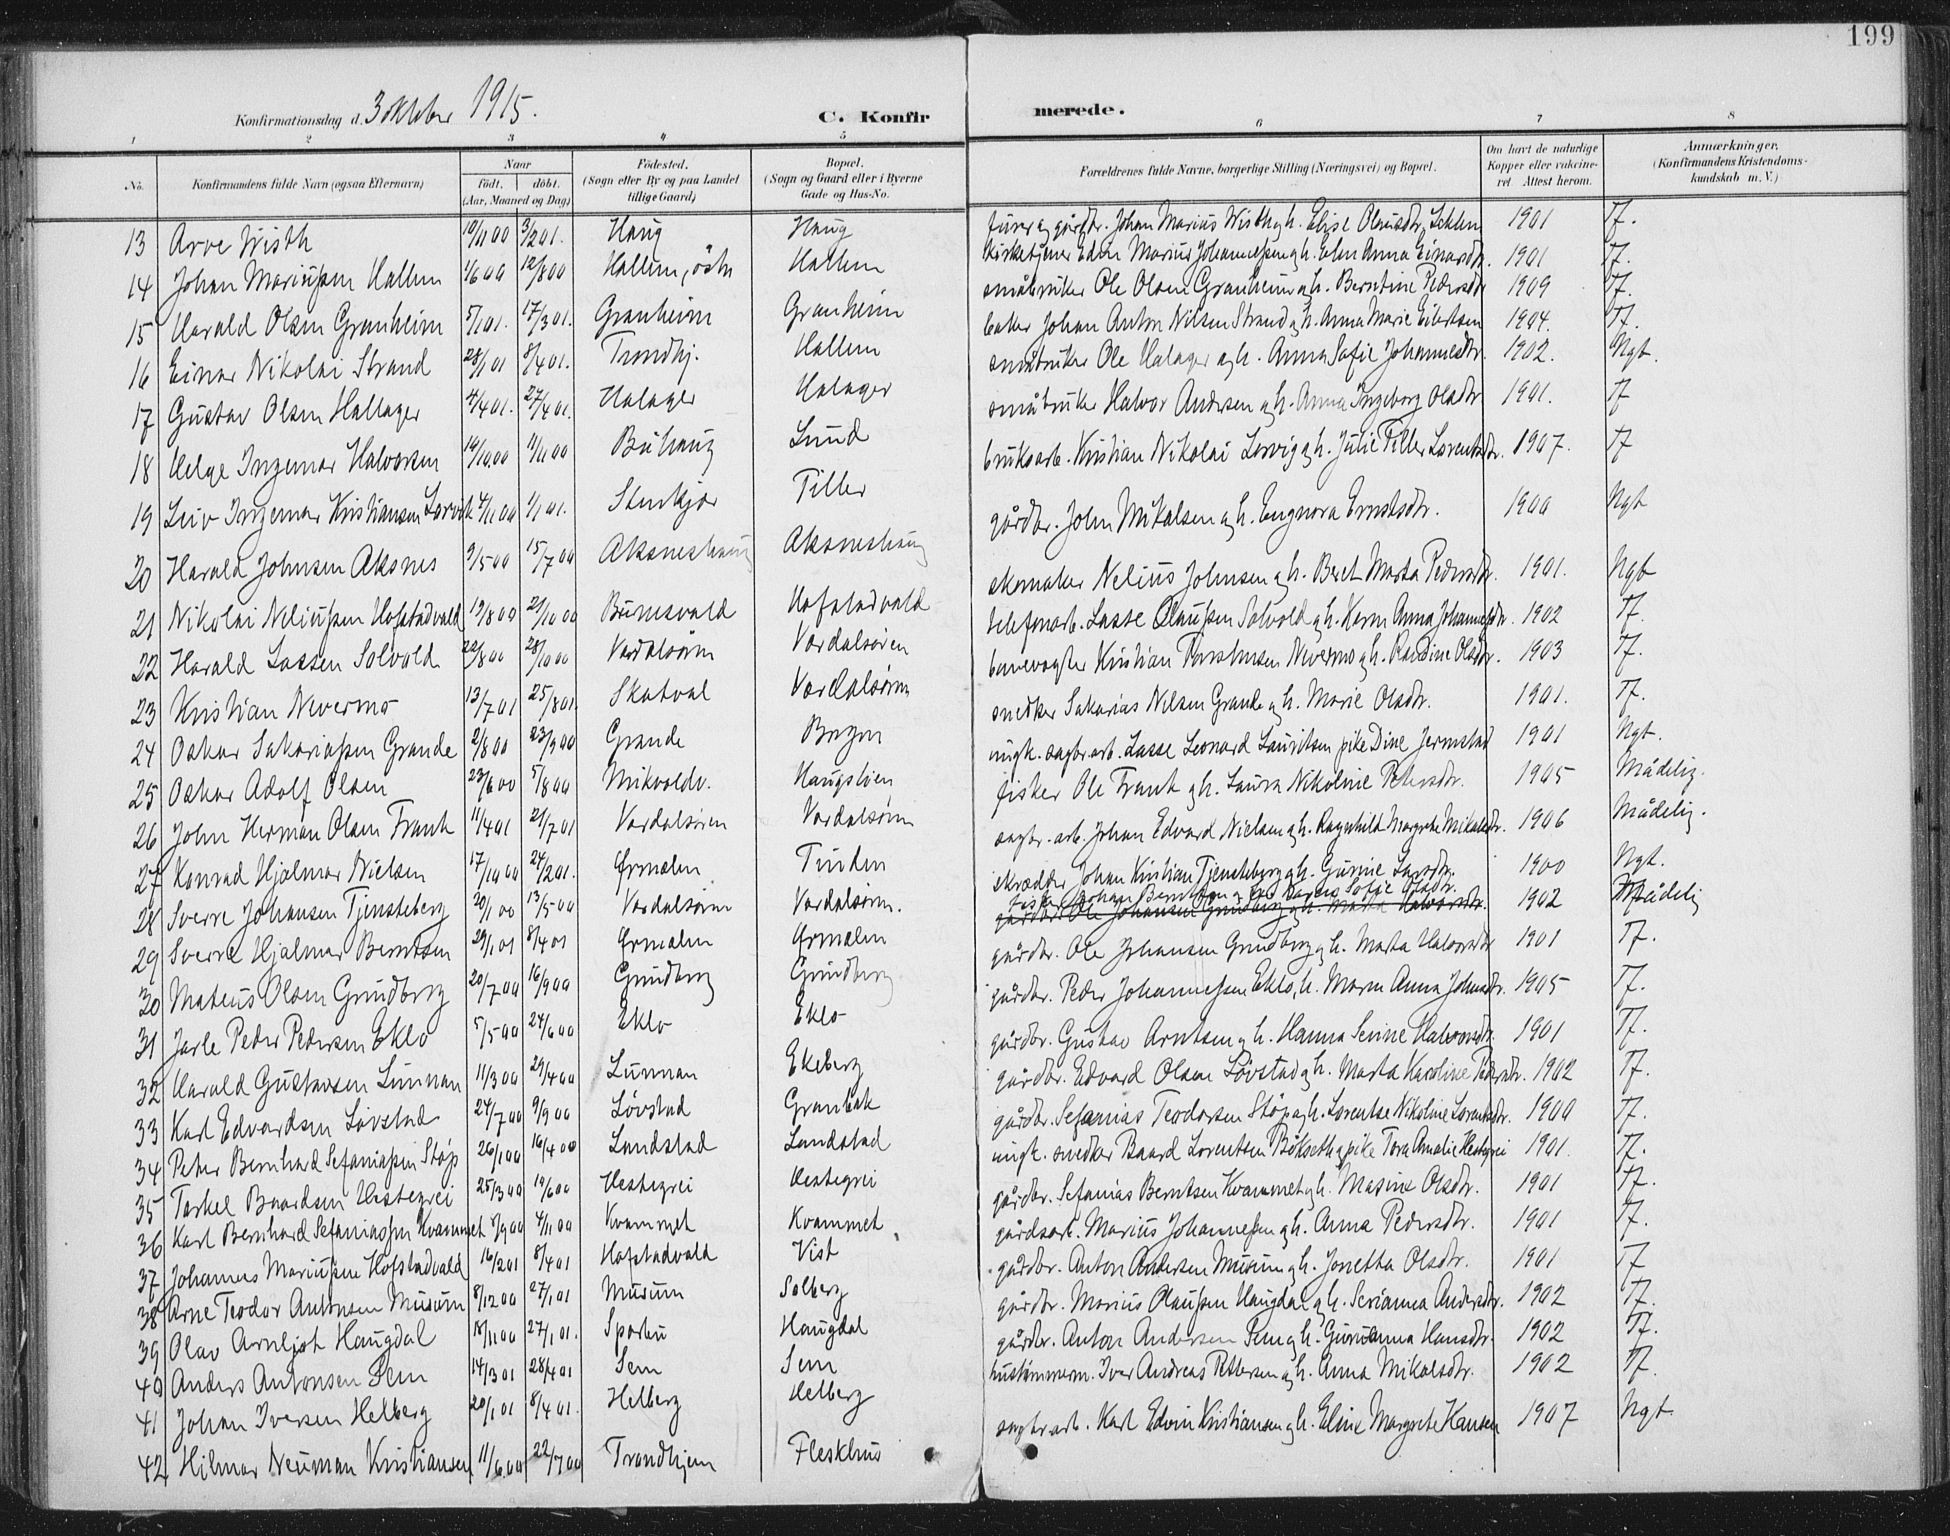 199
Konfirmationsdag d. 3 oktober 1915. C. Konfirmerede.
1 2 3 4 5 6 7 8
No. Konfirmandens fulde Navn (ogsaa Efternavn) Naar født. døbt. (Aar, Maaned og Dag) Fødested. (Sogn eller By og paa Landet tillige Gaard) Bopæl. (Sogn og Gaard eller i Byerne Gade og Hus-No. Forældrenes fulde Navne, borgerlige Stilling (Næringsvei) og Bopæl. Om havt de naturlige Kopper eller vakcineret. Attest herom. Anmærkninger. (Konfirmandens Kristendomskundskab m. V.)
13 Arve Wisth 10/11 00 3/2 01. Haug Haug furer og gårdbr. Johan Marius Wisth og h. Elise Olausdtr. 1901 Tf.
14 Johan Mariussen Hallem 1/6 00 12/8 00 Hallem, Hallem kirketjener Marius Johannessen og h. Anna Einarsdtr. 1901 Tf.
15 Harald Olsen Granheim 5/1 01. 17/3 01. Granheim Granheim småbruker Ole Olsen Granheim og h. Berntine Pedersdtr 1909 Tf.
16 Einar Nikolai Strand 28/1 01 8/4 01. Trondhj. Hallem baker Johan Anton Nilsen Strand og h. Anna Marie Eilertsen 1904. Tf.
17 Gustav Olsen Hallager 4/4 01. 27/4 01. Halager Halager småbruker Ole Halager og h. Anna Sofie Johannesdtr. 1902. Ngt.
18 Helge Ingemar Halvorsen 19/10 00 11/11 00 Buhaug Lund småbruker Halvor Andersen og h. Anna Ingeborg Olsdtr 1901. Tf
19 Leiv Ingemar Kristiansen Lorvik 4/11 00 1/1 01. Stenkjær Tiller bruksarb. Kristian Nikolai Lorvig og h. Julie Tiller Lorentsdtr. 1907. Tf
20 Harald Johnsen Aksnes 9/5 00 15/7 00 Aksneshaug Aksneshaug gårdbr. John Mikalsen og h. Engnora Ernstsdtr. 1900 Ngt
21 Nikolai Neliussen Hofstadvald 19/8 00 21/10 00 Bunesvald Hofstadvald skomaker Nelius Johnsen og h. Beret Marta Pedersdtr. 1901. Ngt
22 Harald Lassen Solvold 22/8 00 28/10 00 Værdalsøren Værdalsøren telefonarb. Lasse Olaussen Solvold og h. Karen Anna Johannesdtr. 1902 Tf.
23 Kristian Nevermo 13/7 01 25/8 01. Skatval Værdalsøren banevogter Kristian Nevermo og h. Olsdtr. 1903 Tf.
24 Oskar Sakariassen Grande 2/8 00 23/9 00 Grande snedker Sakarias Nilsen Grande og h. Marie Olsdtr. 1901. Tf.
25 Oskar Adolf Olsen 23/6 00 5/8 00 Mikvoldv. Haugsløen ungk. sagbr.arb. Lasse Leonard Lauritsen pike Dine Jermstad 1901 Ngt.
26 John Herman Olsen Frank 11/4 01 21/7 01 Værdalsøren Værdalsøren fisker Ole Frank og h. Laura Nikoline Petersdtr. 1905 Mådelig.
27 Konrad Hjalmar Nielsen 17/10 00 24/2 01. Ørmelen Tinden sagbr.-arb. Johan Edvard Nielsen og h. Ragnhild Margrete Mikalsdtr. 1906 Mådelig.
28 Sverre Johansen Tjensteberg 20/1 00 13/5 00 Værdalsøren Værdalsøren. skrædder Johan Kristian Tjensteberg og h. Gurine Larsdtr. 1900 Ngt.
29 Sverre Hjalmar Berntsen 29/1 01 8/4 01 Ørmelen Ørmelen fisker Johan Berntsen og h. Karen Sofie Olsdtr. 1902 Mådelig
gårdbr. Ole Johansen Grundberg og h. Marta Halvorsdtr.
30 Mateus Olsen Grundberg 20/7 00 16/9 00 Grundberg Grundberg gårdbr. Ole Johansen Grundberg og h. Marta Halvorsdtr 1901 Tf.
31 Jarle Peder Pedersen Eklo 5/5 00 24/6 00 Eklo Eklo gårdbr. Peder Johannessen Eklo, h. Maren Anna Johnsdtr. 1905 Tf.
32 Harald Gustavsen Lunnan 11/3 00 29/4 00 Lunnan Ekeberg gårdbr. Gustav Arntsen og h. Hanna Serine Halvorsdtr. 1901 Tf.
33 Karl Edvardsen Løvstad 24/7 00 9/9 00 Løvstad Granbak gårdbr. Edvard Olsen Løvstad og h. Marta Karoline Pedersdtr. 1902 Tf.
34 Peter Bernhard Sefaniassen Støp 26/1 00 16/4 00 Landstad Landstad gårdbr. Sefanias Teodorsen Støp og h. Lorentse Nikoline Lorentsdtr. 1900 Tf.
35 Torkel Baardsen Hestegrei 25/3 00 10/6 00 Hestegrei Hestegrei ungk. snedker Baard Lorentsen Bøkseth og pike Tora Amalie Hestegrei 1901. Tf.
36 Karl Bernhard Sefaniassen Kvammet 1/9 00 4/11 00 Kvammet Kvammet gårdbr. Sefanias Berntsen Kvammet og h. Masine Olsdtr. 1901 Tf.
37 Johannes Mariussen Hofstadvald 16/2 01 8/4 01 Hofstadvald Vist gårdsarb. Marius Johannessen og h. Anna Pedersdtr. 1901 Tf.
38 Arne Teodor Antonsen Musum 8/12 00 27/1 01 Musum Solberg gårdbr. Anton Andersen Musum og h. Jonetta Olsdtr. 1901 Tf
39 Olav Arnljot Haugdal 18/11 00 27/1 01. Sparbu Haugdal gårdbr. Marius Olaussen Haugdal og h. Serianna Andersdtr. 1902 Tf.
40 Anders Antonsen Sem 14/3 01 28/4 01 Sem Sem gårdbr. Anton Andersen Sem og h. Gurianna Hansdtr. 1902 Tf.
41 Johan Iversen Helberg 20/1 01 8/4 01. Helberg Helberg hustømmerm. Iver Andreas Pettersen og h. Anna Mikalsdtr. 1902 Tf.
42 Hilmar Neuman Kristiansen 11/6 00 22/7 00 Trondhjem Fleskhus sagbr.arb. Karl Edvin Kristiansen og h. Eline Margrete Hansen 1907 Ngt.